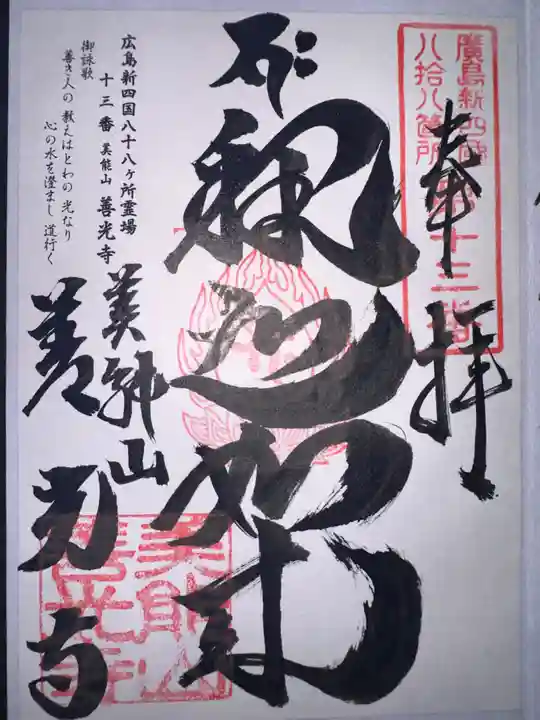 廣島新四國
八拾八箇所
第十三番
奉拝
釈迦如来
美能山
善光寺
広島新四国八十八ヶ所霊場
十三番 美能山 善光寺
御詠歌
善き人の 教えはとわの 光なり
心の水を澄まし 道行く
美能山
善光寺